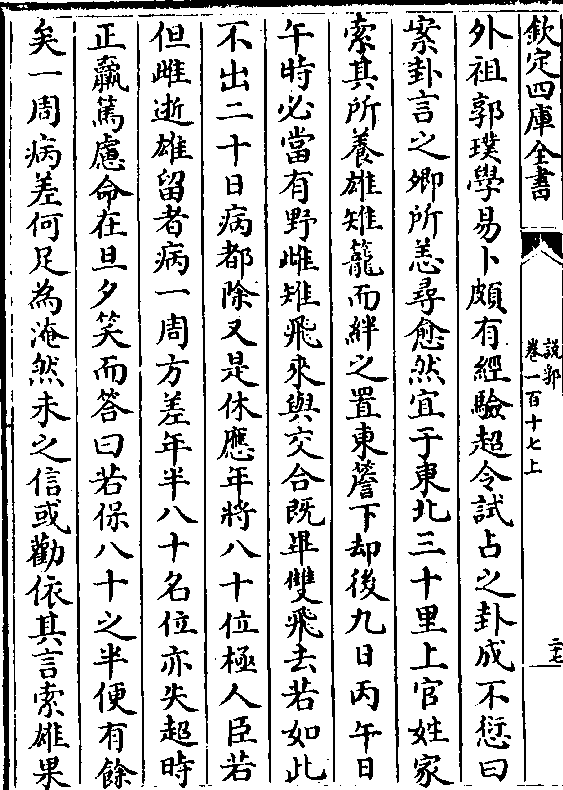 欽定四庫全書
說郛
卷一百十七上
二十七
外祖郭璞學易卜頗有經驗超令試占之卦成不愆曰
案卦言之卿所恙尋愈然宜于東北三十里上官姓家
索其所養雄雉籠而絆之置東簷下却後九日丙午日
午時必當有野雌雉飛來與交合既畢雙飛去若如此
不出二十日病都除又是休應年將八十位極人臣若
但雌逝雄留者病一周方差年半八十名位亦失超時
正羸篤慮命在旦夕笑而答曰若保八十之半便有餘
矣一周病差何足為淹然未之信或勸依其言索雄果